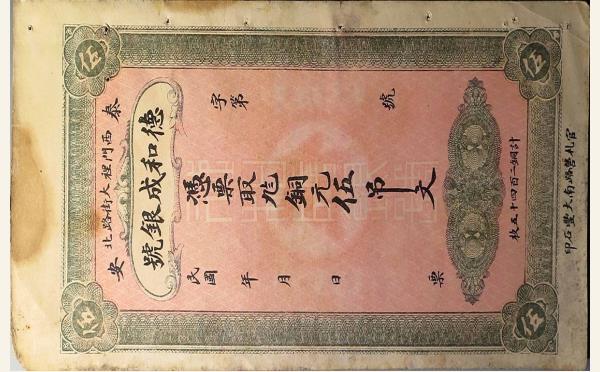 伍 伍
泰安
西門裡大街路北
德和成銀號
字第 號
憑票取九八銅元伍吊文
民國 年 月 日 票
計銅二百四十五枚
伍 伍
官札營路南大豐石印